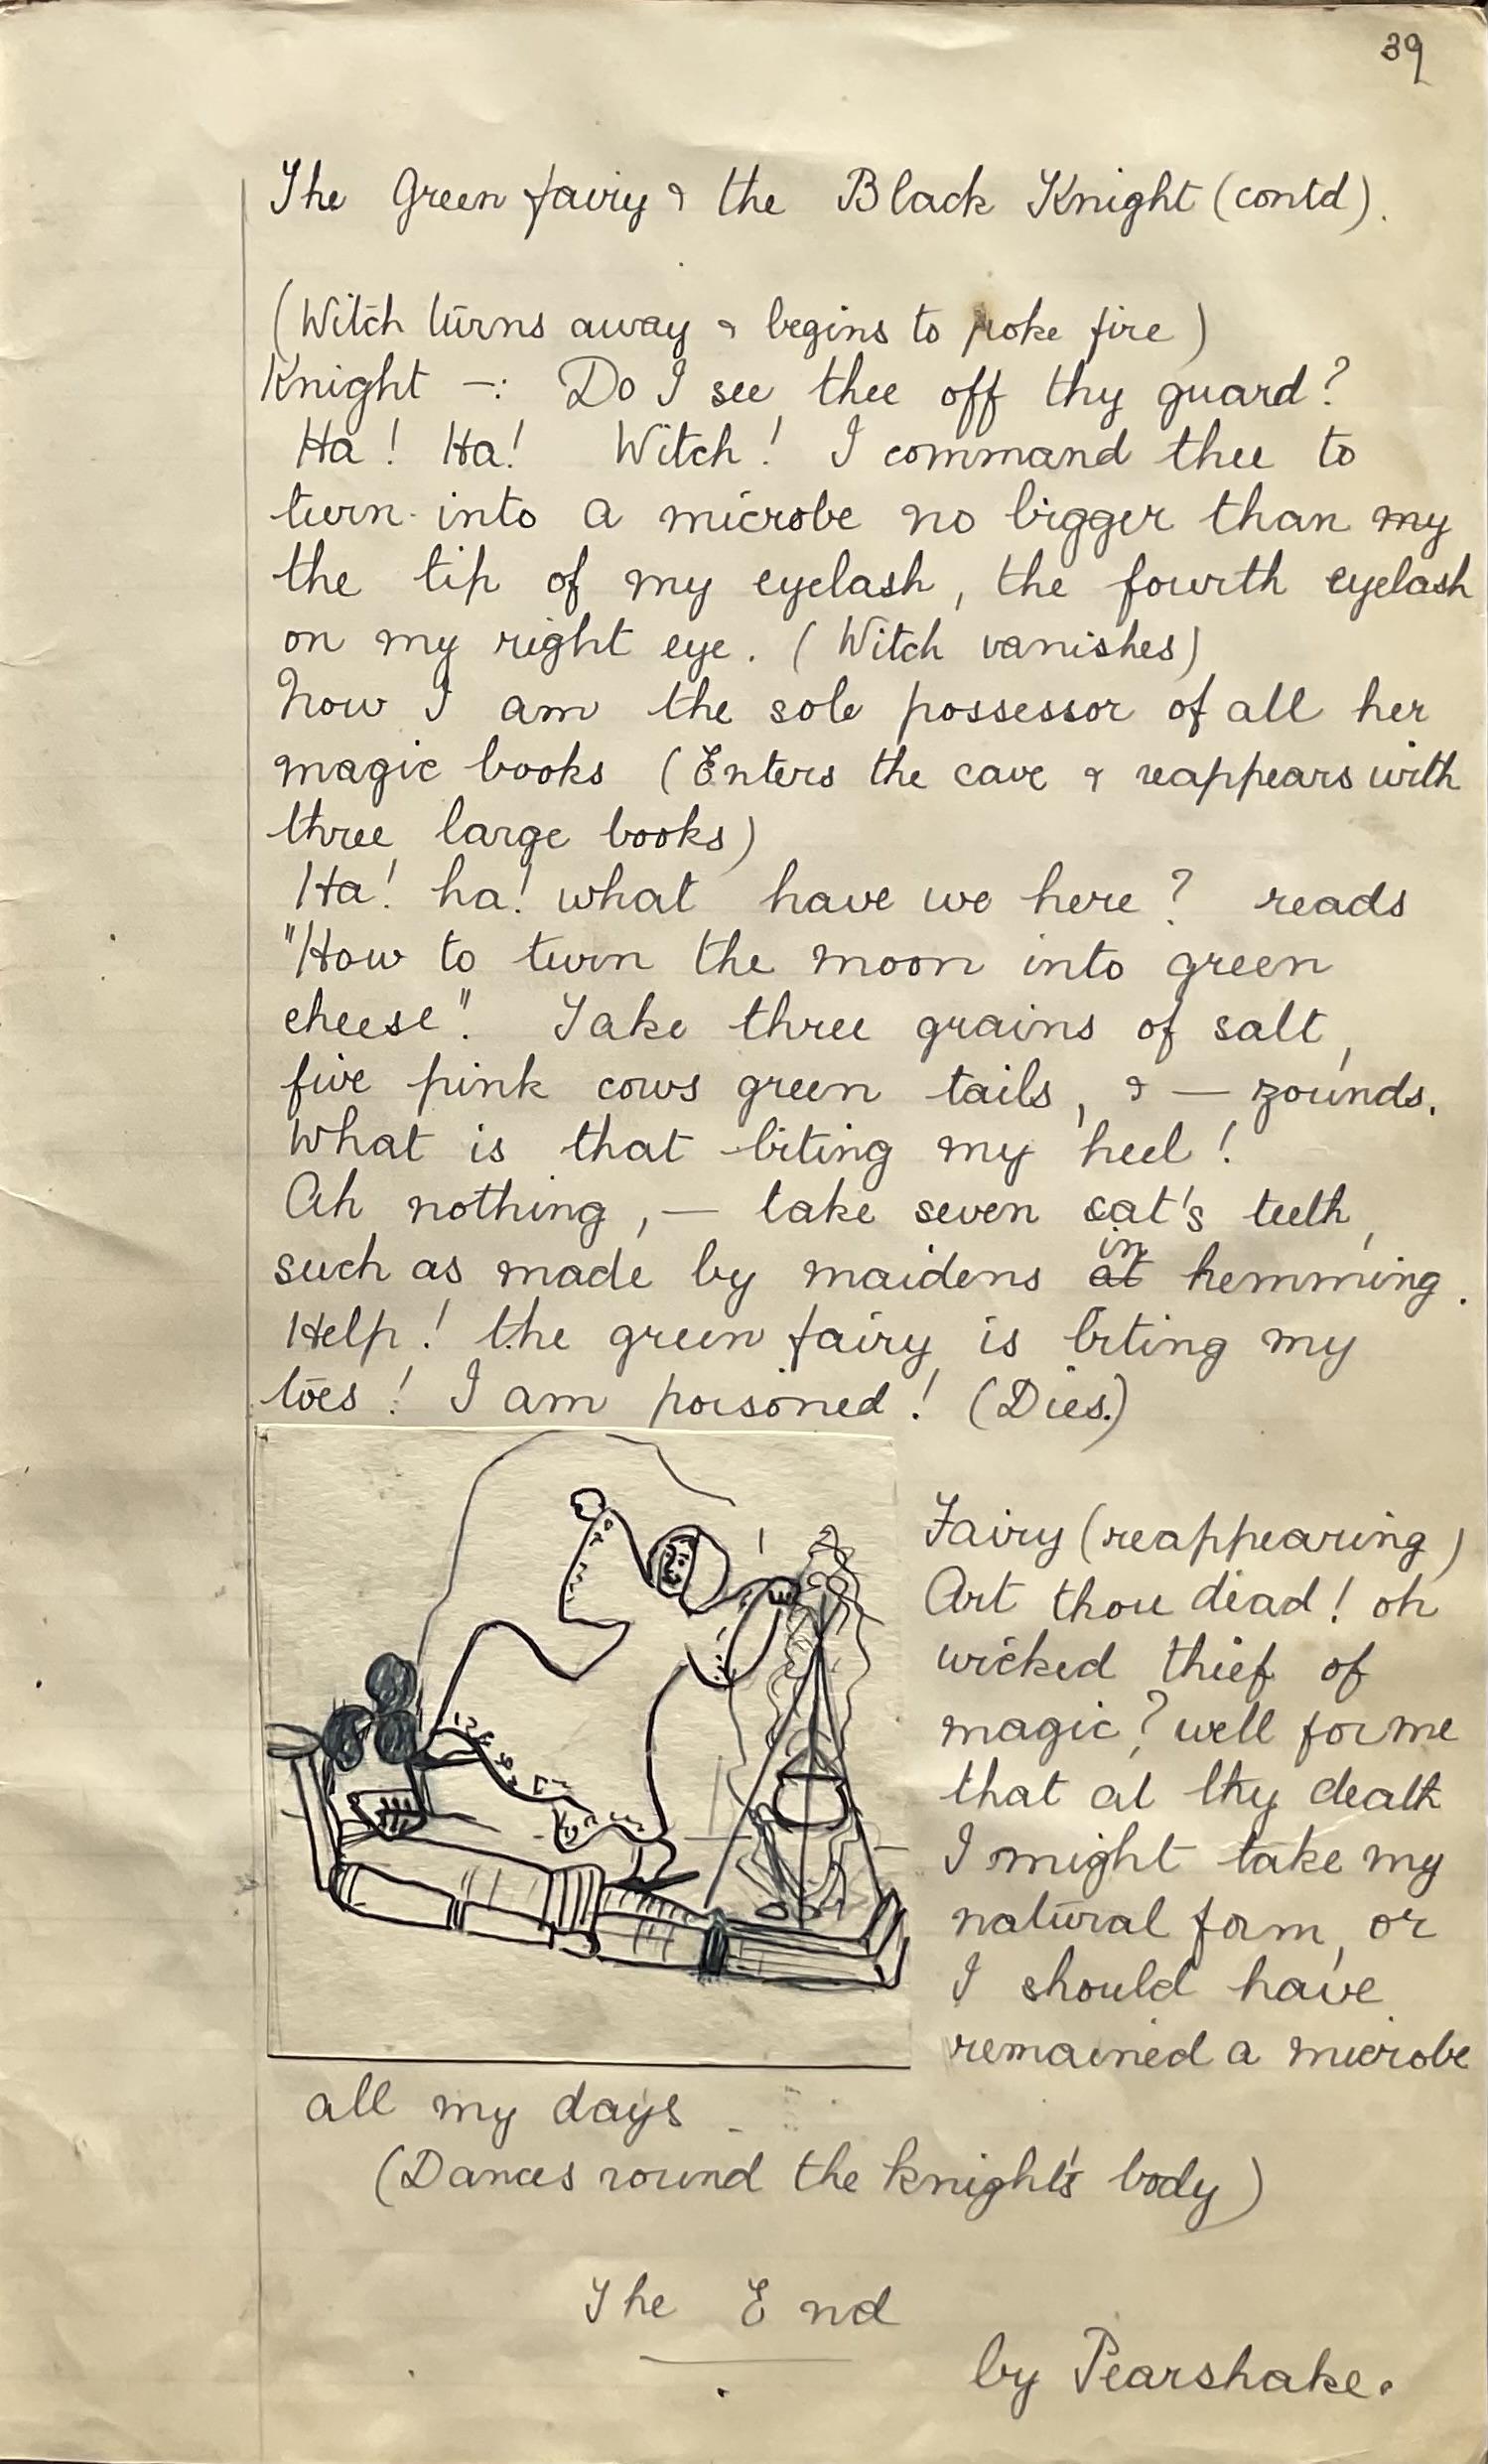 39
The Green fairy & the Black Knight (contd).
(Witch turns away & begins to poke fire)
Knight -: Do I see thee off thy guard?
Ha! Ha! Witch! I command thee to
turn into a microbe no bigger than my
the tip of my eyelash, the fourth eyelash
on my right eye. (Witch vanishes)
Now I am the sole possessor of all her
magic books (Enters the cave & reappears with
three large books)
Ha! ha! what have we here? reads
"How to turn the moon into green
cheese". Take three grains of salt,
five pink cows green tails, & — zounds.
What is that biting my heel!
Ah nothing, — take seven cat's teeth,
such as made by maidens at in hemming.
Help! the green fairy is biting my
toes! I am poisoned! (Dies.)
Fairy (reappearing)
Art thou dead! oh
wicked thief of
magic? well for me
that at thy death
I might take my
natural form, or
I should have
remained a microbe
all my days
(Dances round the knight's body)
The End
by Pearshake.